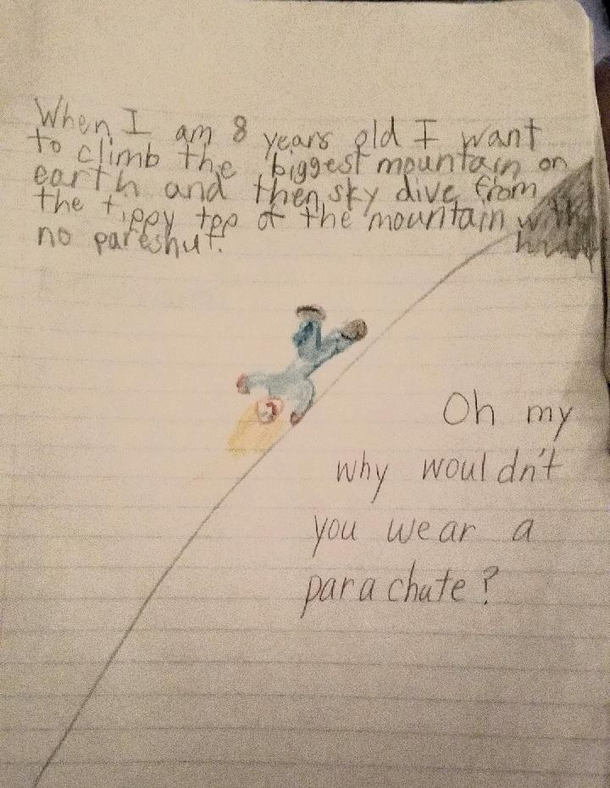 When I am 8 years old I want
to climb the biggest mountain on
earth and then sky dive from
the tippy top of the mountain with
no pareshut.
Oh my
why wouldn't
you wear a
parachute?